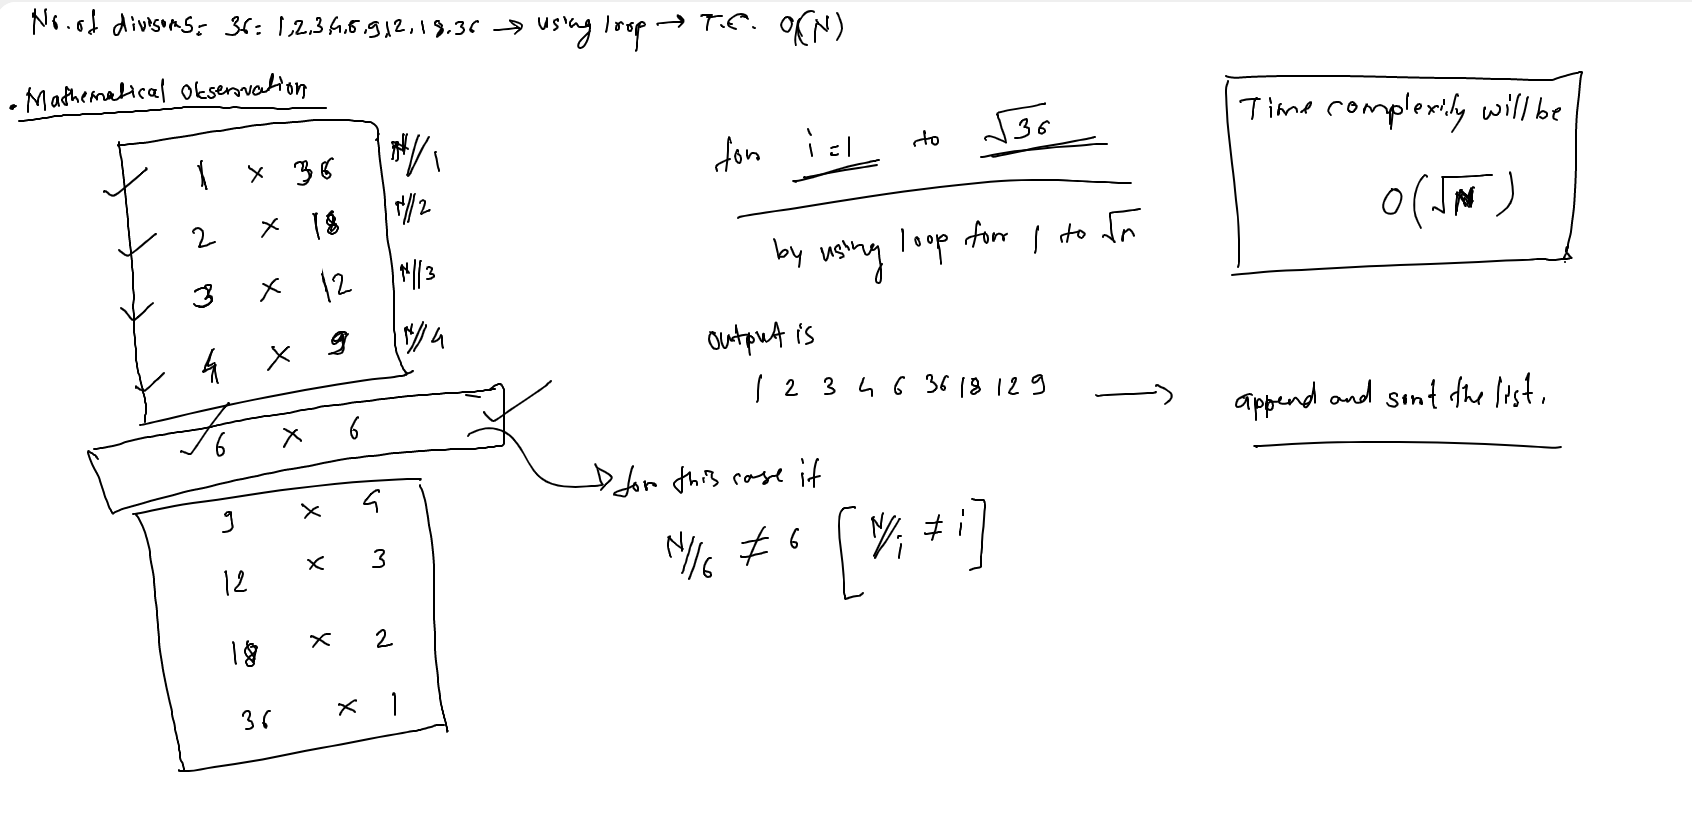 No. of divisors = 36 = 1,2,3,4,6,9,12,18,36 → using loop → T.C. O(N)
• Mathematical Observation
1 × 36 N//1
2 × 18 N//2
3 × 12 N//3
4 × 9 N//4
6 × 6
9 × 4
12 × 3
18 × 2
36 × 1
for i=1 to √36
by using loop for 1 to √n
output is
1 2 3 4 6 36 18 12 9 → append and sort the list.
for this case if
N//6 ≠ 6 [N//i ≠ i]
Time complexity will be
O(√N)